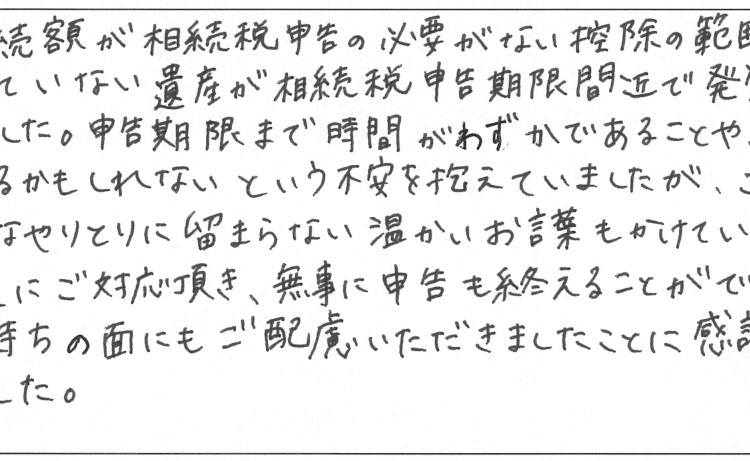 続額が相続税申告の必要がない控除の範囲
ていない遺産が相続税申告期限間近で発
した。申告期限まで時間がわずかであることや、
るかもしれないという不安を抱えていましたが、こ
なやりとりに留まらない温かいお言葉もかけてい
にご対応頂き、無事に申告も終えることがで
持ちの面にもご配慮いただきましたことに感謝
した。